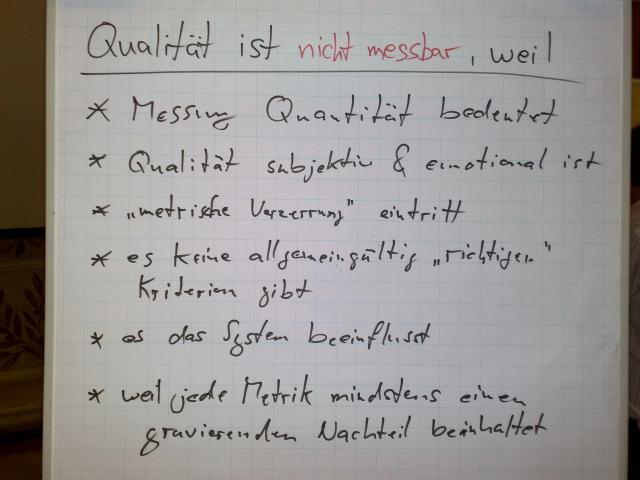 Qualität ist nicht messbar, weil
* Messung Quantität bedeutet
* Qualität subjektiv & emotional ist
* „metrische Verzerrung" eintritt
* es keine allgemeingültig „richtigen"
Kriterien gibt
* es das System beeinflusst
* weil jede Metrik mindstens einen
gravierenden Nachteil beinhaltet